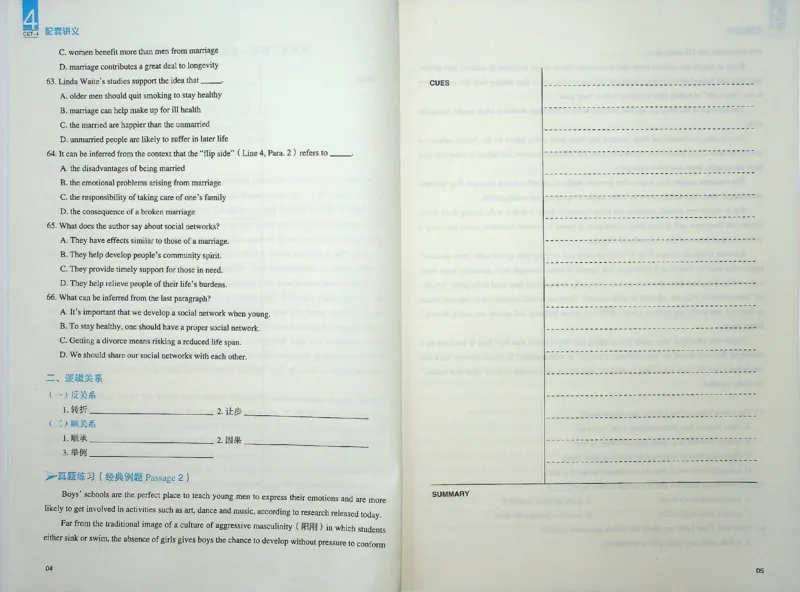 4
CET-4
配套讲义
C. women benefit more than men from marriage
D. marriage contributes a great deal to longevity
63. Linda Waite's studies support the idea that _____.
A. older men should quit smoking to stay healthy
B. marriage can help make up for ill health
C. the married are happier than the unmarried
D. unmarried people are likely to suffer in later life
64. It can be inferred from the context that the "flip side" ( Line 4, Para. 2 ) refers to _____.
A. the disadvantages of being married
B. the emotional problems arising from marriage
C. the responsibility of taking care of one's family
D. the consequence of a broken marriage
65. What does the author say about social networks?
A. They have effects similar to those of a marriage.
B. They help develop people's community spirit.
C. They provide timely support for those in need.
D. They help relieve people of their life's burdens.
66. What can be inferred from the last paragraph?
A. It's important that we develop a social network when young.
B. To stay healthy, one should have a proper social network.
C. Getting a divorce means risking a reduced life span.
D. We should share our social networks with each other.
二、逻辑关系
（一）反关系
1. 转折 _____ 2. 让步 _____
（二）顺关系
1. 顺承 _____ 2. 因果 _____
3. 举例 _____
真题练习（经典例题 Passage 2）
Boys' schools are the perfect place to teach young men to express their emotions and are more
likely to get involved in activities such as art, dance and music, according to research released today.
Far from the traditional image of a culture of aggressive masculinity (阳刚) in which students
either sink or swim, the absence of girls gives boys the chance to develop without pressure to conform
04
CUES
SUMMARY
05